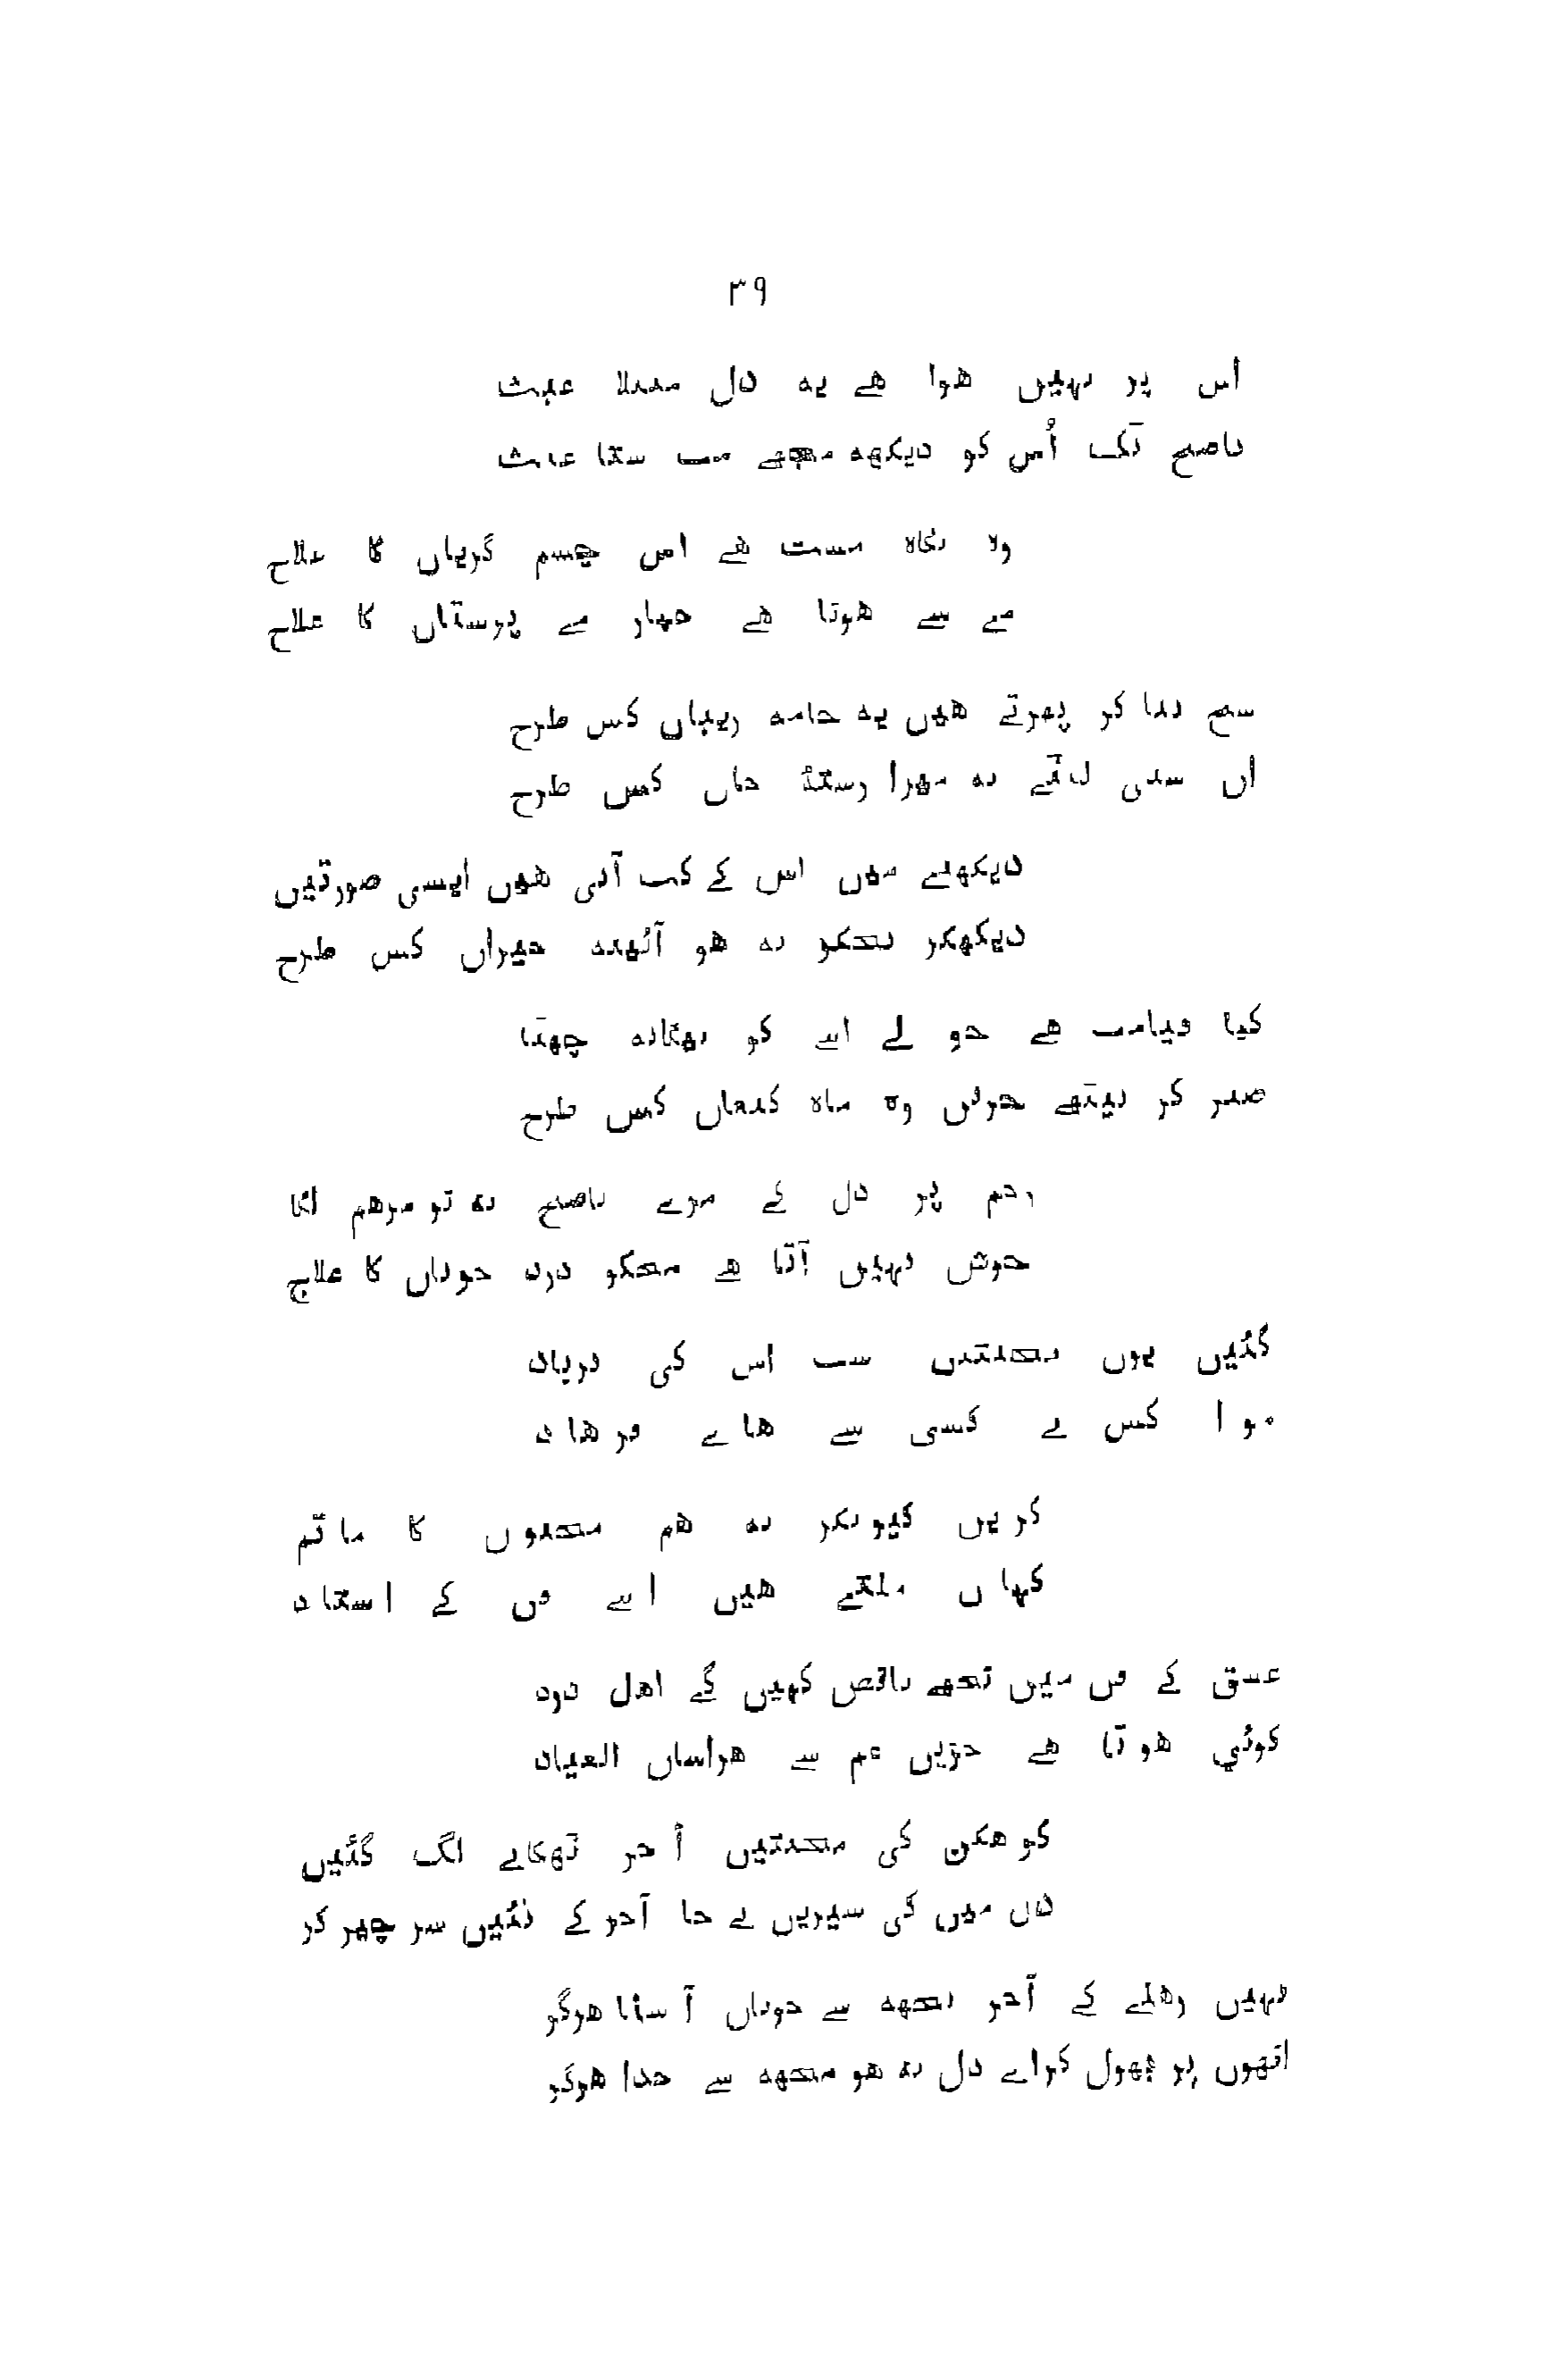 ۳۹
اس پر نہیں ھوا ھے یہ دل مبتلا عبث
ناصح تک اُس کو دیکھہ مجھے مت ستا عبث
وہ نگاہ مست ھے اس چشم گریاں کا علاج
مے سے ھوتا ھے خمار مے پرستاں کا علاج
سج بنا کر پھرتے ھیں یہ جامہ زیباں کس طرح
اں ستی لاگے نہ میرا رستۂ جاں کس طرح
دیکھنے میں اس کے کب آئی ھیں ایسی صورتیں
دیکھکر تجکو نہ ھو آئینہ حیراں کس طرح
کیا قیامت ھے جو لے اسے کو بھگانہ چھتا
صبر کر بیٹھے حزیں وہ ماہ کنعاں کس طرح
زخم پر دل کے مرے ناصح نہ تو مرھم لگا
خوش نہیں آتا ھے مجکو درد خوباں کا علاج
گئیں یوں محنتیں سب اس کی برباد
موا کس بے کسی سے ھاے فرھاد
کریں کیونکر نہ ھم مجنوں کا ماتم
کہاں ملتے ھیں اسے فن کے استاد
عشق کے فن میں تجھے ناقص کہیں گے اھل درد
کوئی ھوتا ھے حزیں غم سے ھراساں العیاذ
کوھکن کی محنتیں آخر ٹھکانے لگ گئیں
دن میں کی شیریں نے جا آخر کے تئیں سر چیر کر
نہیں رھنے کے آخر تجھہ سے خوباں آشنا ھرگز
انھوں پر بھول کر اے دل نہ ھو مجھہ سے جدا ھرگز